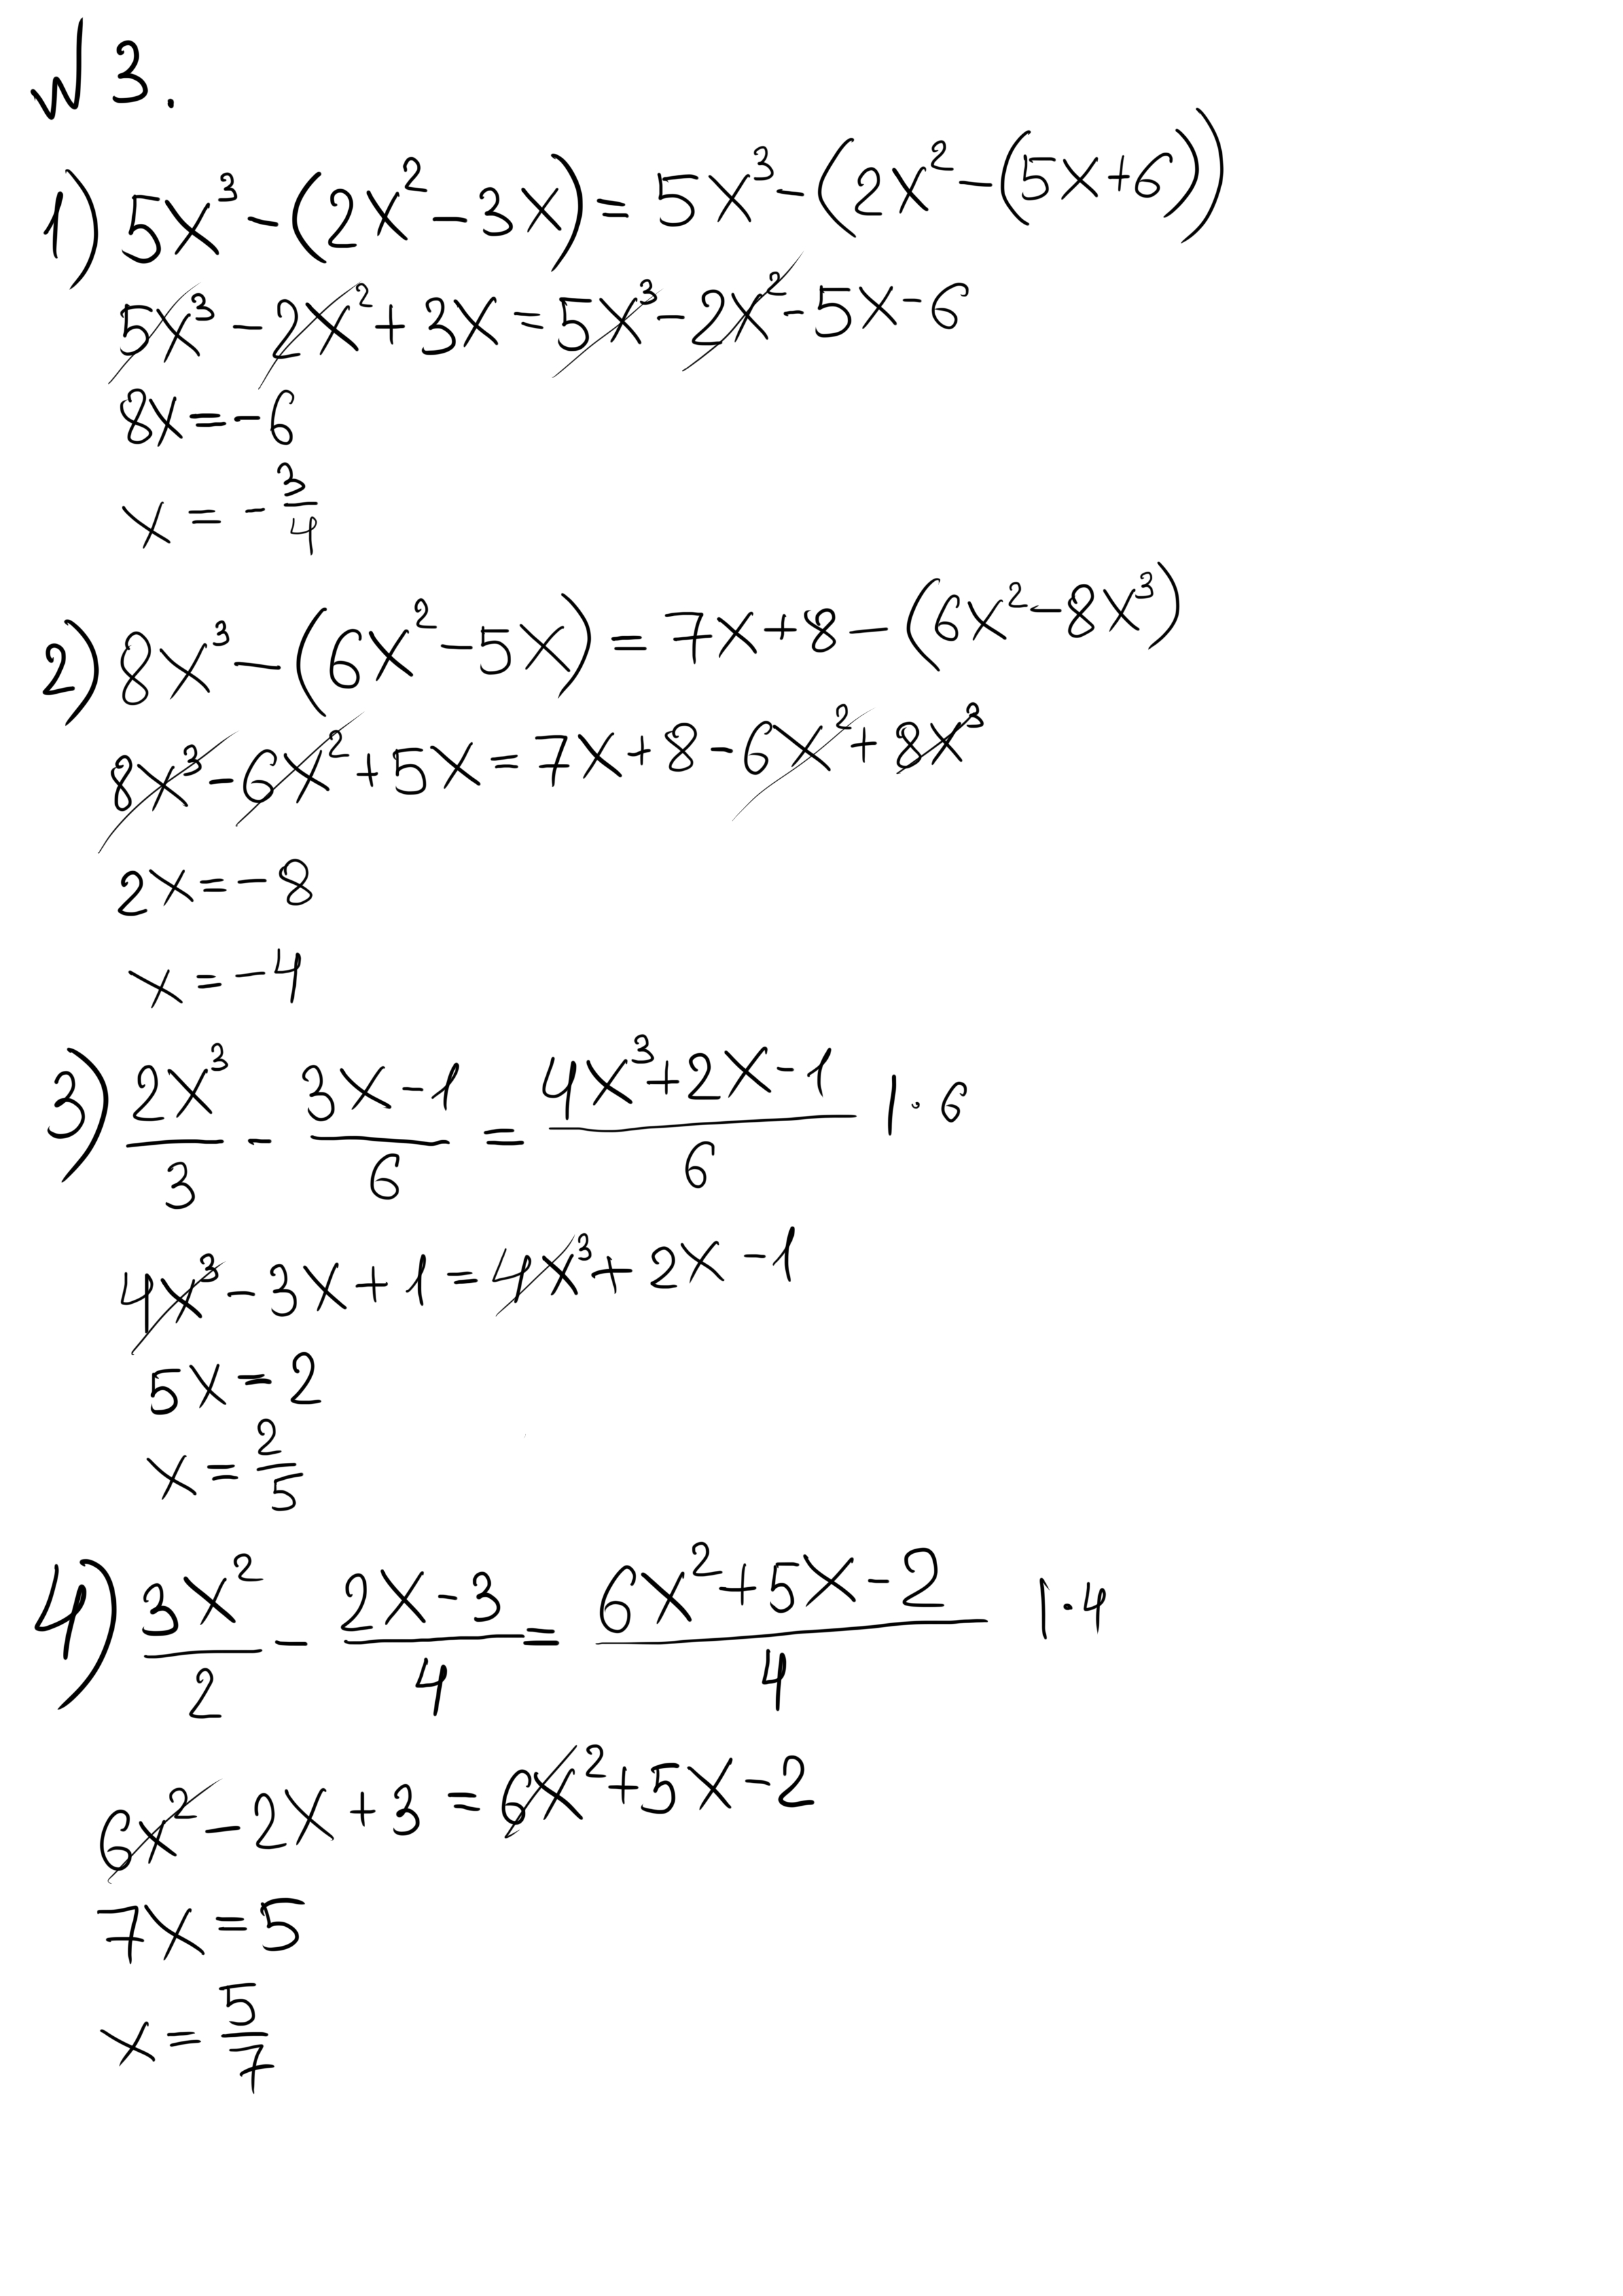 №3.
1) 5x³ - (2x² - 3x) = 5x³ - (2x² - (5x + 6))
5x³ - 2x² + 3x = 5x³ - 2x² - 5x - 6
8x = -6
x = - 3/4
2) 8x³ - (6x² - 5x) = 7x + 8 - (6x² - 8x³)
8x³ - 6x² + 5x = 7x + 8 - 6x² + 8x³
2x = -8
x = -4
3) 2x³/3 - (3x - 1)/6 = (4x³ + 2x - 1)/6 | · 6
4x³ - 3x + 1 = 4x³ + 2x - 1
5x = 2
x = 2/5
4) 3x²/2 - (2x - 3)/4 = (6x² + 5x - 2)/4 | · 4
6x² - 2x + 3 = 6x² + 5x - 2
7x = 5
x = 5/7